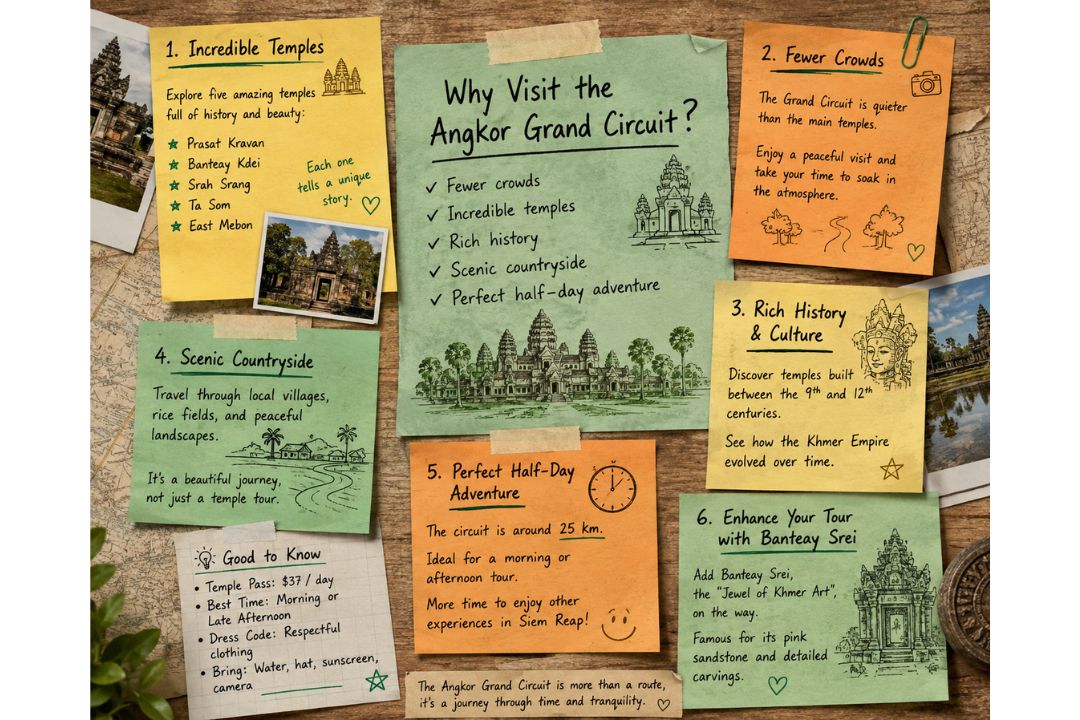 Why Visit the
Angkor Grand Circuit?
✓ Fewer crowds
✓ Incredible temples
✓ Rich history
✓ Scenic countryside
✓ Perfect half-day adventure
1. Incredible Temples
Explore five amazing temples
full of history and beauty:
Prasat Kravan
Banteay Kdei
Srah Srang
Ta Som
East Mebon
Each one
tells a unique
story.
2. Fewer Crowds
The Grand Circuit is quieter
than the main temples.
Enjoy a peaceful visit and
take your time to soak in
the atmosphere.
3. Rich History
& Culture
Discover temples built
between the 9th and 12th
centuries.
See how the Khmer Empire
evolved over time.
4. Scenic Countryside
Travel through local villages,
rice fields, and peaceful
landscapes.
It's a beautiful journey,
not just a temple tour.
5. Perfect Half-Day
Adventure
The circuit is around 25 km.
Ideal for a morning or
afternoon tour.
More time to enjoy other
experiences in Siem Reap!
6. Enhance Your Tour
with Banteay Srei
Add Banteay Srei,
the "Jewel of Khmer Art",
on the way.
Famous for its pink
sandstone and detailed
carvings.
Good to Know
• Temple Pass: $37 / day
• Best Time: Morning or
Late Afternoon
• Dress Code: Respectful
clothing
• Bring: Water, hat, sunscreen,
camera
The Angkor Grand Circuit is more than a route,
it's a journey through time and tranquility.